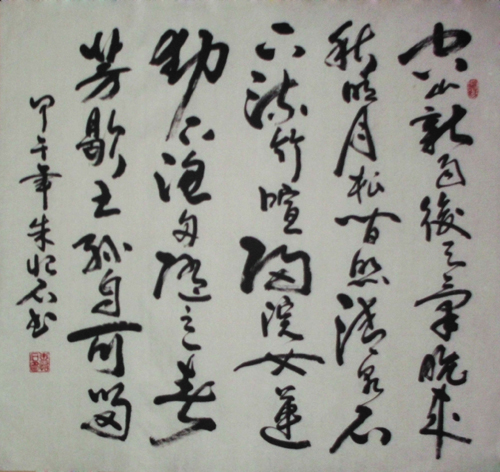 空山新雨後天氣晚來
秋明月松間照清泉石
上流竹喧歸浣女蓮
動下漁舟隨意春
芳歇王孫自可留
甲午年朱石书